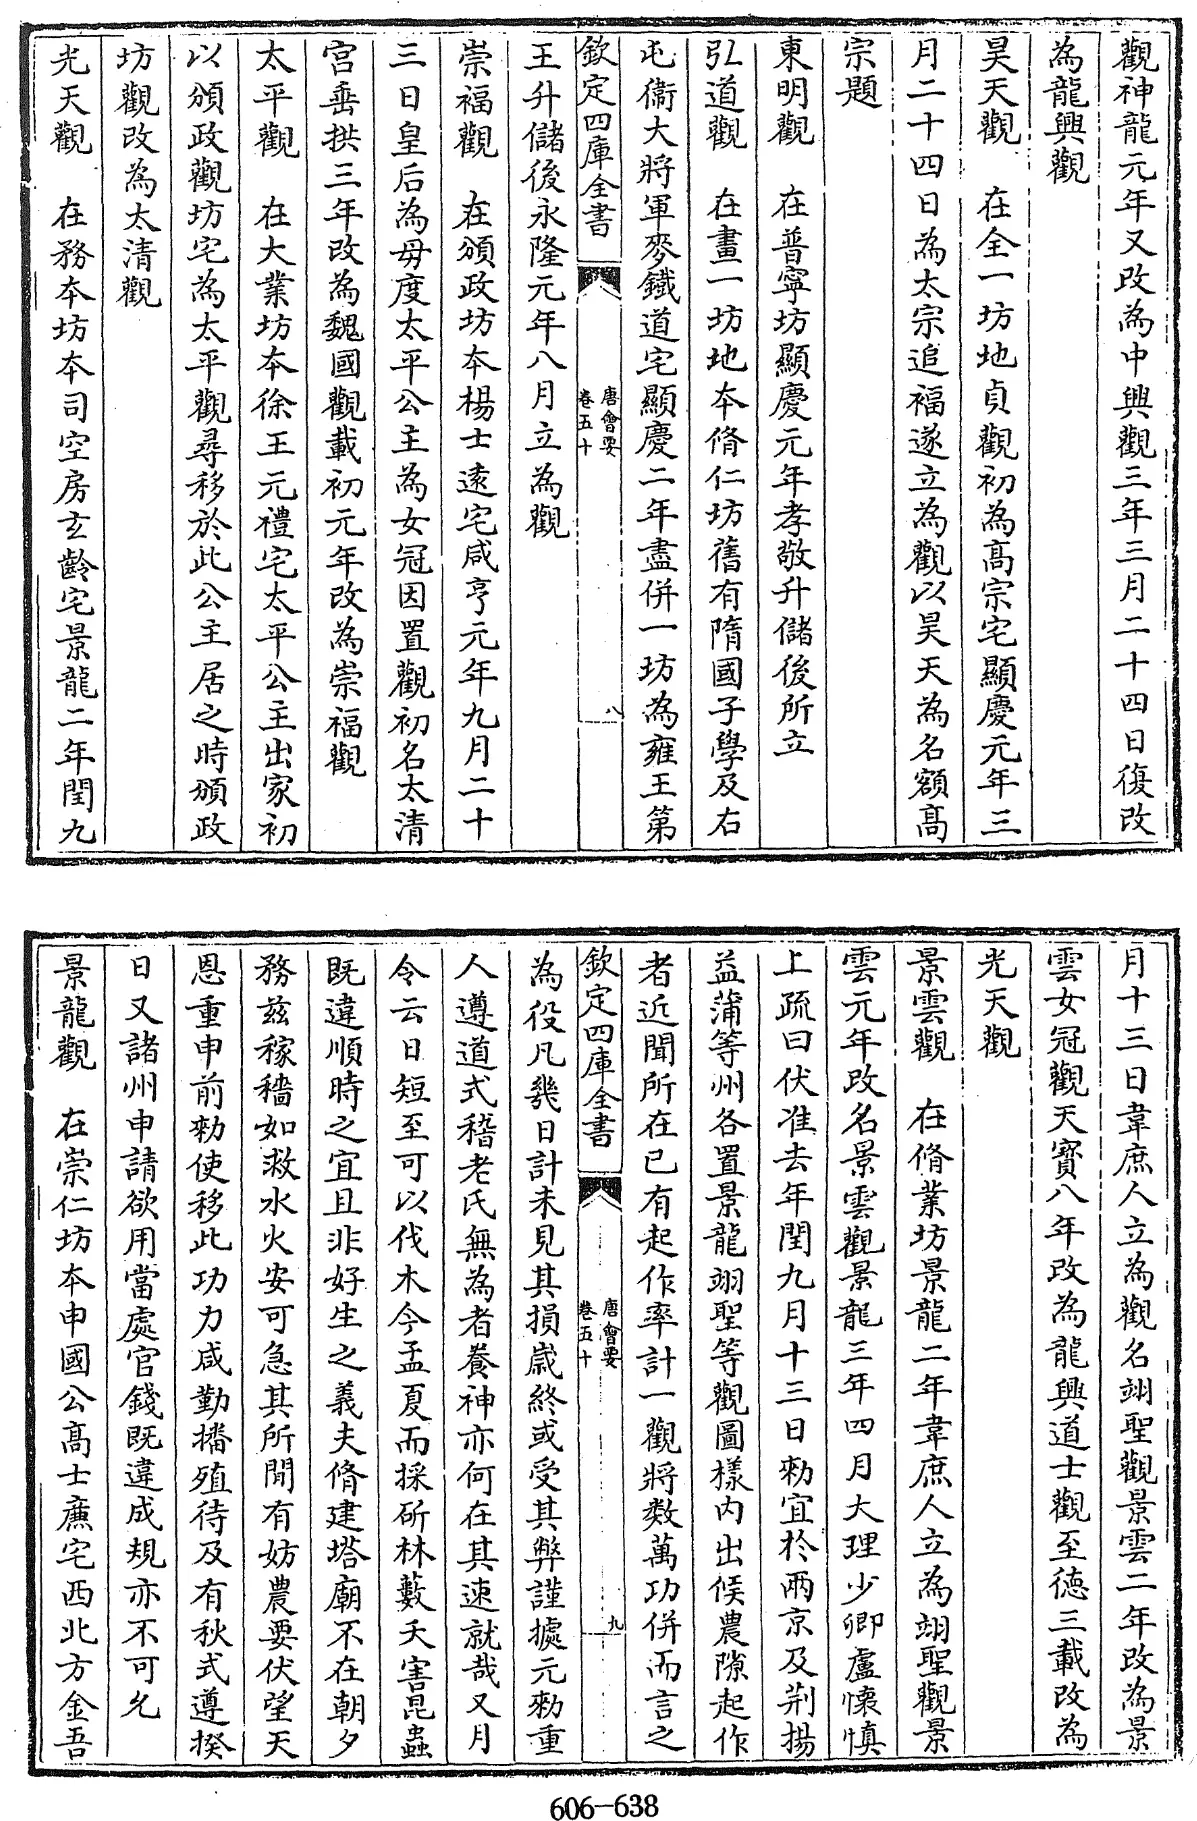 觀神龍元年又改為中興觀三年三月二十四日復改
為龍興觀
昊天觀　在全一坊地貞觀初為高宗宅顯慶元年三
月二十四日為太宗追福遂立為觀以昊天為名額高
宗題
東明觀　在普寧坊顯慶元年孝敬升儲後所立
弘道觀　在畫一坊地本脩仁坊舊有隋國子學及右
屯衞大將軍麥鐵道宅顯慶二年盡併一坊為雍王第
欽定四庫全書
唐會要
卷五十
八
王升儲後永隆元年八月立為觀
崇福觀　在頒政坊本楊士逺宅咸亨元年九月二十
三日皇后為母度太平公主為女冠因置觀初名太清
宫垂拱三年改為魏國觀載初元年改為崇福觀
太平觀　在大業坊本徐王元禮宅太平公主出家初
以頒政觀坊宅為太平觀尋移於此公主居之時頒政
坊觀改為太清觀
光天觀　在務本坊本司空房玄齡宅景龍二年閏九
月十三日韋庶人立為觀名翊聖觀景雲二年改為景
雲女冠觀天寶八年改為龍興道士觀至德三載改為
光天觀
景雲觀　在脩業坊景龍二年韋庶人立為翊聖觀景
雲元年改名景雲觀景龍三年四月大理少卿盧懷慎
上疏曰伏准去年閏九月十三日勑宜於兩京及荆揚
益蒲等州各置景龍翊聖等觀圖樣内出候農隙起作
者近聞所在已有起作率計一觀將數萬功併而言之
欽定四庫全書
唐會要
卷五十
九
為役凡幾日計未見其損嵗終或受其弊謹據元勑重
人遵道式稽老氏無為者養神亦何在其速就哉又月
令云日短至可以伐木今孟夏而採斫林藪夭害昆蟲
既違順時之宜且非好生之義夫脩建塔廟不在朝夕
務兹稼穡如救水火安可急其所閒有妨農要伏望天
恩重申前勑使移此功力咸勤播殖待及有秋式遵揆
日又諸州申請欲用當處官錢既違成規亦不可允
景龍觀　在崇仁坊本申國公高士廉宅西北方金吾
606—638